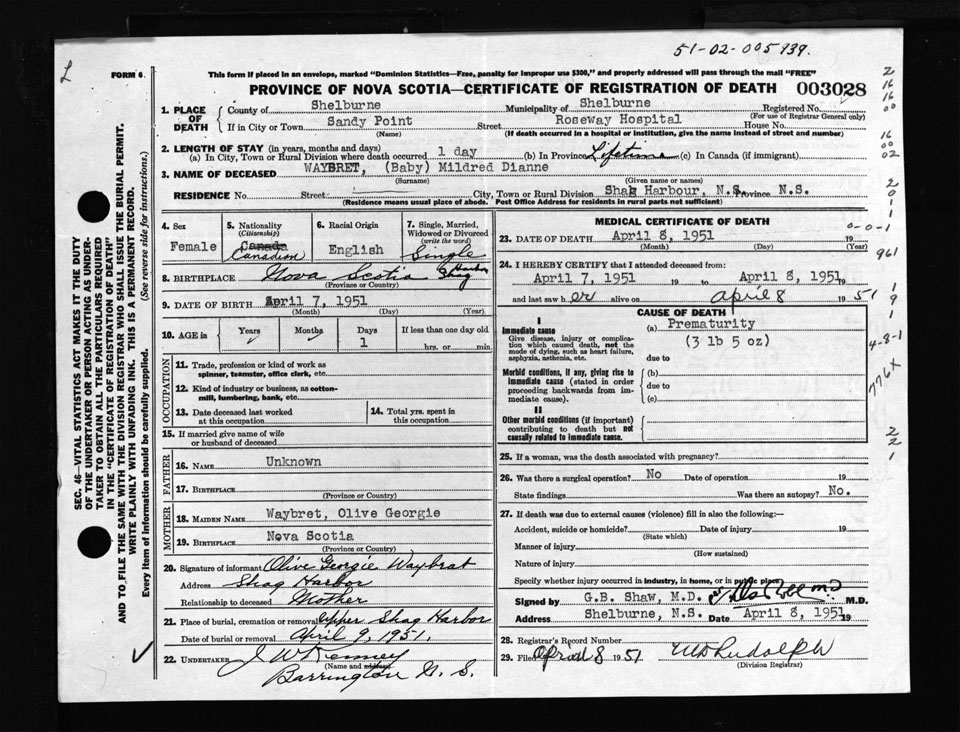 51-02-005939.
L
FORM 6.
This form if placed in an envelope, marked "Dominion Statistics—Free, penalty for improper use $300," and properly addressed will pass through the mail "FREE"
PROVINCE OF NOVA SCOTIA—CERTIFICATE OF REGISTRATION OF DEATH 003028
1. PLACE OF DEATH
County of Shelburne Municipality of Shelburne Registered No.
(For use of Registrar General only)
If in City or Town Sandy Point Street Roseway Hospital House No.
(Name) (If death occurred in a hospital or institution, give the name instead of street and number)
2. LENGTH OF STAY (in years, months and days)
(a) In City, Town or Rural Division where death occurred 1 day (b) In Province Lifetime (c) In Canada (if immigrant)
3. NAME OF DECEASED WAYBRET, (Baby) Mildred Dianne
(Surname) (Given name or names)
RESIDENCE No. Street City, Town or Rural Division Shag Harbour, N.S. Province N.S.
(Residence means usual place of abode. Post Office Address for residents in rural parts not sufficient)
4. Sex
Female
5. Nationality
(Citizenship)
Canada
Canadian
6. Racial Origin
English
7. Single, Married, Widowed or Divorced
(write the word)
Single
8. BIRTHPLACE Nova Scotia Shag Harbor
(Province or Country)
9. DATE OF BIRTH April 7, 1951
(Month) (Day) (Year)
10. AGE in Years Months Days 1 If less than one day old
hrs. or min.
OCCUPATION
11. Trade, profession or kind of work as
spinner, teamster, office clerk, etc.
12. Kind of industry or business, as cotton-
mill, lumbering, bank, etc.
13. Date deceased last worked
at this occupation
14. Total yrs. spent in
this occupation
15. If married give name of wife
or husband of deceased
FATHER
16. NAME Unknown
17. BIRTHPLACE
(Province or Country)
MOTHER
18. MAIDEN NAME Waybret, Olive Georgie
19. BIRTHPLACE Nova Scotia
(Province or Country)
20. Signature of informant Olive Georgie Waybrat
Address Shag Harbor
Relationship to deceased Mother
21. Place of burial, cremation or removal Upper Shag Harbor
Date of burial or removal April 9, 1951.
22. UNDERTAKER J W Kenney
(Name and address)
Barrington N. S.
MEDICAL CERTIFICATE OF DEATH
23. DATE OF DEATH April 8, 1951 19
(Month) (Day) (Year)
24. I HEREBY CERTIFY that I attended deceased from:
April 7, 1951 19 to April 8, 1951
and last saw her alive on April 8 1951
CAUSE OF DEATH
I
Immediate cause
Give disease, injury or complica-
tion which caused death, not the
mode of dying, such as heart failure,
asphyxia, asthenia, etc.
(a) Prematurity
(3 lb 5 oz)
due to
Morbid conditions, if any, giving rise to
immediate cause (stated in order
proceeding backwards from im-
mediate cause).
(b)
due to
(c)
II
Other morbid conditions (if important)
contributing to death but not
causally related to immediate cause.
25. If a woman, was the death associated with pregnancy?
26. Was there a surgical operation? No Date of operation 19
State findings Was there an autopsy? No.
27. If death was due to external causes (violence) fill in also the following:—
Accident, suicide or homicide? Date of injury 19
(State which)
Manner of injury
(How sustained)
Nature of injury
Specify whether injury occurred in industry, in home, or in public place
Signed by G.B. Shaw, M.D. M.D.
Address Shelburne, N.S. Date April 8, 1951 19
28. Registrar's Record Number
29. Filed April 8 1951 Rudolph
(Division Registrar)
SEC. 46—VITAL STATISTICS ACT MAKES IT THE DUTY
OF THE UNDERTAKER OR PERSON ACTING AS UNDER-
TAKER TO OBTAIN ALL THE PARTICULARS REQUIRED
IN THE "CERTIFICATE OF REGISTRATION OF DEATH"
AND TO FILE THE SAME WITH THE DIVISION REGISTRAR WHO SHALL ISSUE THE BURIAL PERMIT.
WRITE PLAINLY WITH UNFADING INK. THIS IS A PERMANENT RECORD.
Every item of Information should be carefully supplied. (See reverse side for instructions.)
2
16
16
00
16
00
02
2
0
1
1
0-0-1
961
1
9
1
4-8-1
776X
2
2
1